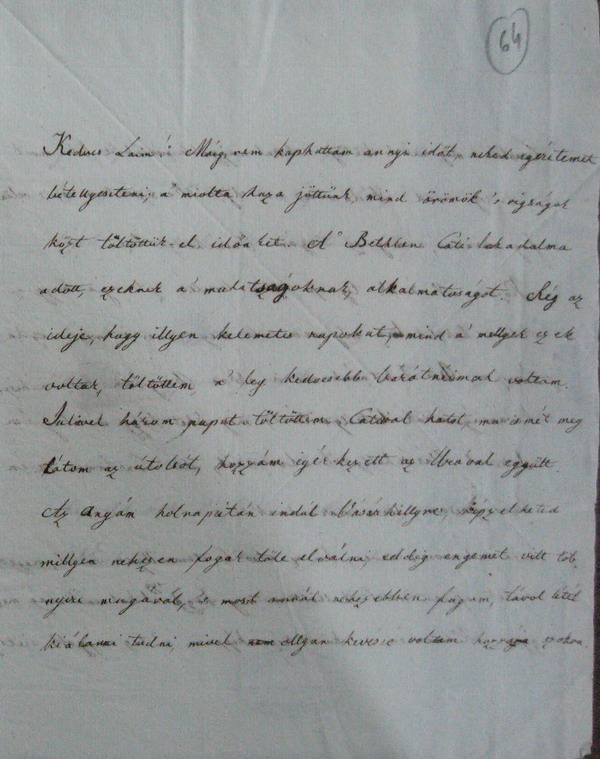 64
Kedves Laim! Máig nem kaphattam annyi időt, neked igéretemet
bétellyesiteni, a' miolta haza jöttünk, mind örömök 's vigságok
közt töltöttük el időnket. A' Bethlen Cati lakadalma
adott, ezeknek a' mulatságoknak, alkalmatoságot. Rég az
ideje, hogy illyen kelemetes napokat, mind a' mellyek ezek
voltak, töltöttem, a' leg kedvesebb barátnéimal voltam.
Julival három napot töltöttem Catival hatot, ma ismét meg
látom az utolsót, hozzám igérkezett az Urával együtt.
Az Anyám holnapután indúl Vásárhellyre, képzelheted
millyen nehezen fogok tőle elválni, eddig engemet vitt több
nyire magával, 's most annál nehezebben fogom, távol létét
ki álani tudni, mivel nem ollyan kevessé voltam hozzája szokva